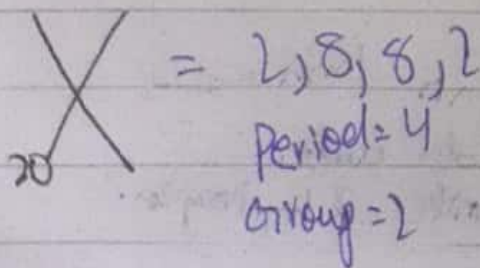 X = 2, 8, 8, 2
20
Period = 4
Group = 2